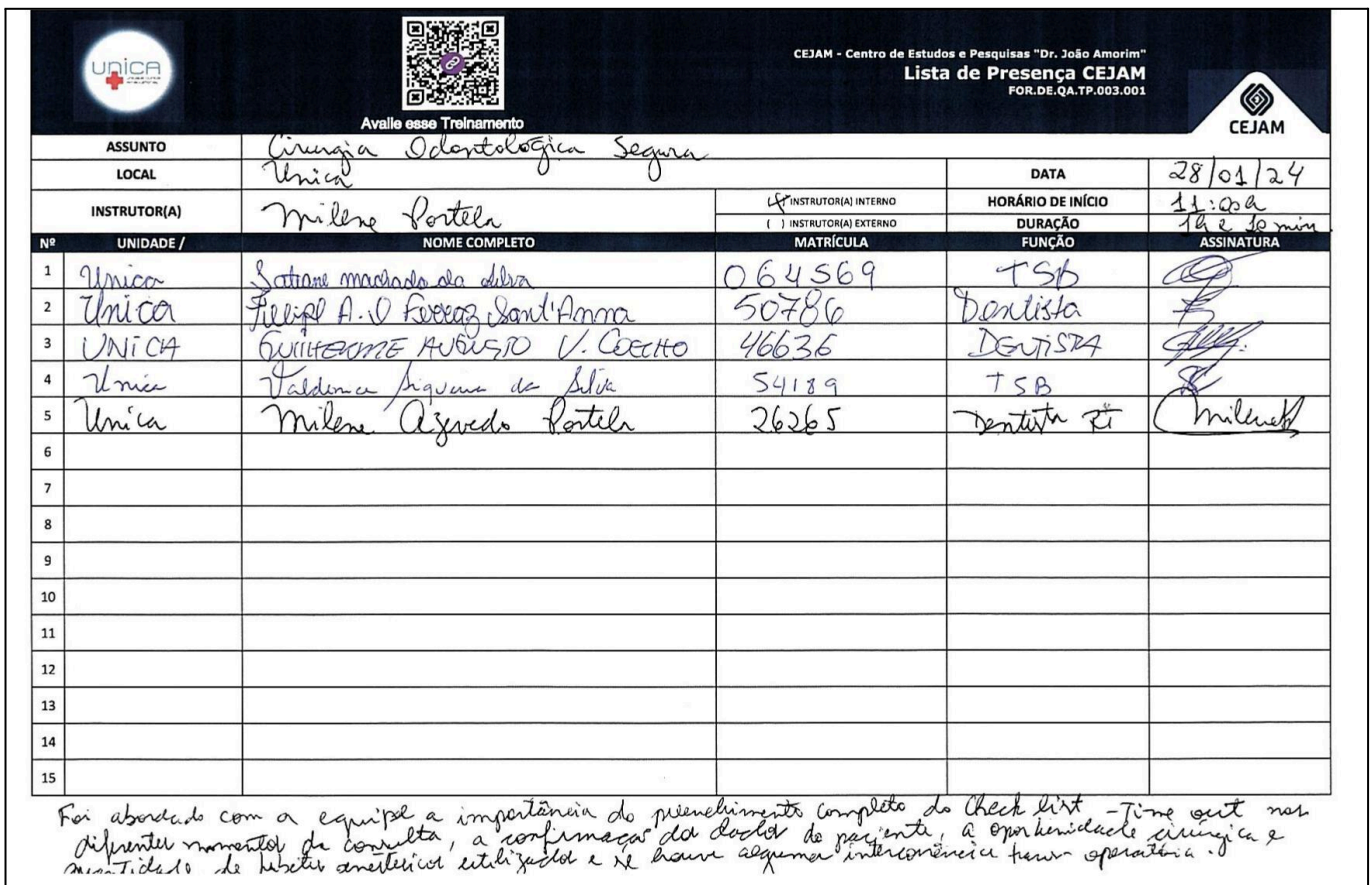 UNICA
CEJAM - Centro de Estudos e Pesquisas "Dr. João Amorim"
Lista de Presença CEJAM
FOR.DE.QA.TP.003.001
CEJAM
Avalie esse Treinamento
ASSUNTO Cirurgia Odontológica Segura
LOCAL Unica DATA 28/01/24
INSTRUTOR(A) Milene Portela INSTRUTOR(A) INTERNO HORÁRIO DE INÍCIO 11:00h
( ) INSTRUTOR(A) EXTERNO DURAÇÃO 1h e 10 min
Nº UNIDADE / NOME COMPLETO MATRÍCULA FUNÇÃO ASSINATURA
1 Unica machado da silva 064569 TSB
2 Unica A. Ferraz Sant'Anna 50786 Dentista
3 UNICA GUILHERME AUGUSTO V. COELHO 46636 DENTISTA
4 Unica Siqueira da Silva 54189 TSB
5 Unica Milene Azevedo Portela 26265 Dentista RT
6
7
8
9
10
11
12
13
14
15
Foi abordado com a equipe a importância do preenchimento completo do Check list - Time out nos
diferentes momentos da consulta, a confirmação dos dados do paciente, a oportunidade cirurgica e
quantidade de anestésicos utilizados e se houve alguma intercorrência trans operatória.